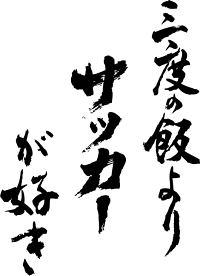 三度の飯より
サッカー
が好き